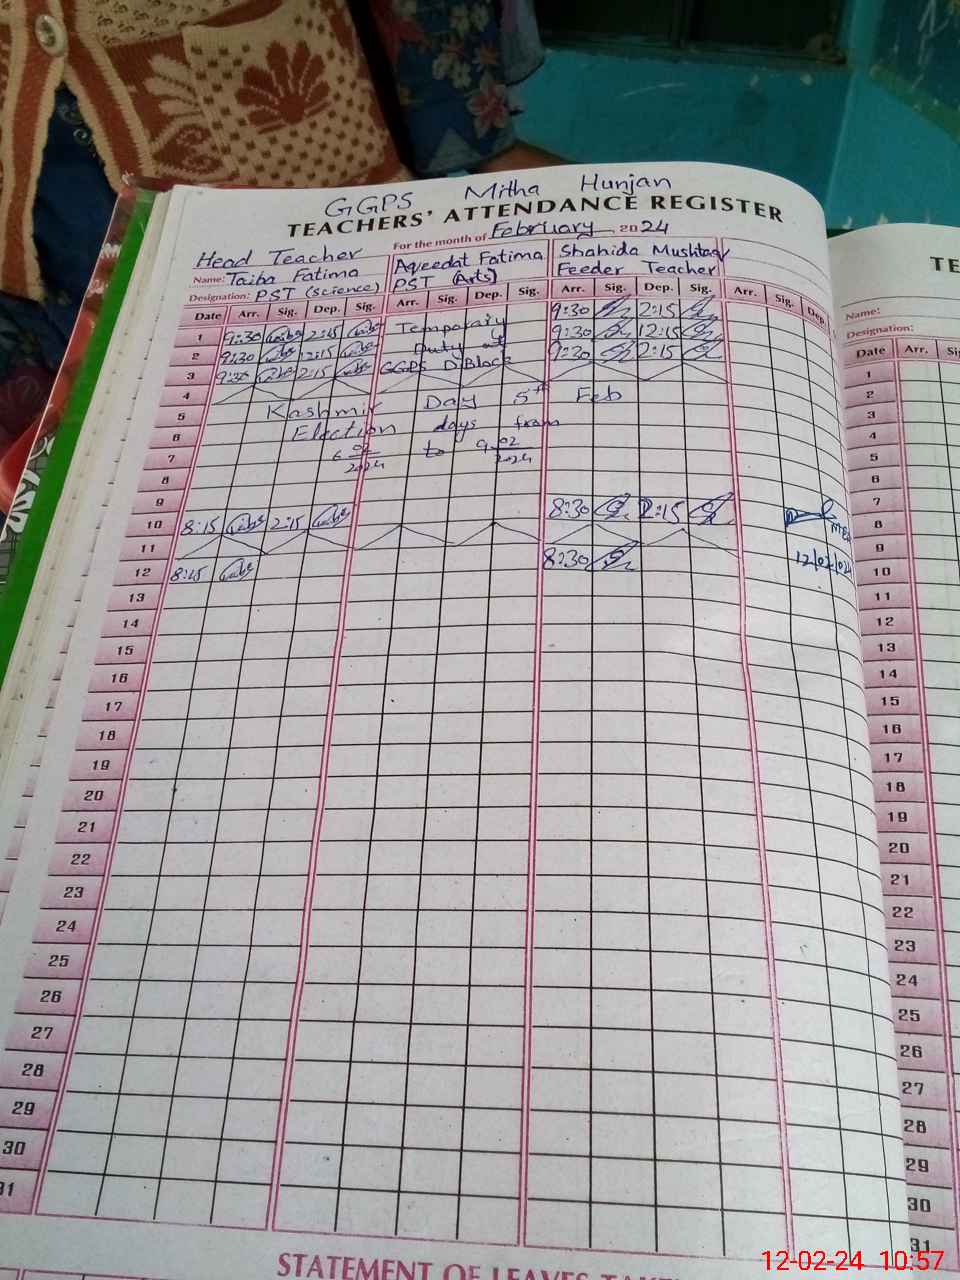 GGPS Mitha Hunjan
TEACHERS' ATTENDANCE REGISTER
For the month of February 2024
Head Teacher
Name: Taiba Fatima
Designation: PST (science)
Aqeedat Fatima
PST (Arts)
Shahida Mushtaq
Feeder Teacher
Date Arr. Sig. Dep. Sig. Arr. Sig. Dep. Sig. Arr. Sig. Dep. Sig. Arr. Sig. Dep.
1 9:30 2:15 Temporary 9:30 2:15
2 9:30 12:15 Duty at 9:30 12:15
3 9:30 2:15 GGPS D.Block 9:30 2:15
4
5 Kashmir Day 5th Feb
6 Election days from
7 6 02 2024 to 9 02 2024
8
9
10 8:15 2:15 8:30 2:15
11
12 8:15 8:30 12/02/024
13
14
15
16
17
18
19
20
21
22
23
24
25
26
27
28
29
30
31
STATEMENT OF LEAVES
TE
Name:
Designation:
Date Arr. Sig
1
2
3
4
5
6
7
8
9
10
11
12
13
14
15
16
17
18
19
20
21
22
23
24
25
26
27
28
29
30
31
12-02-24 10:57